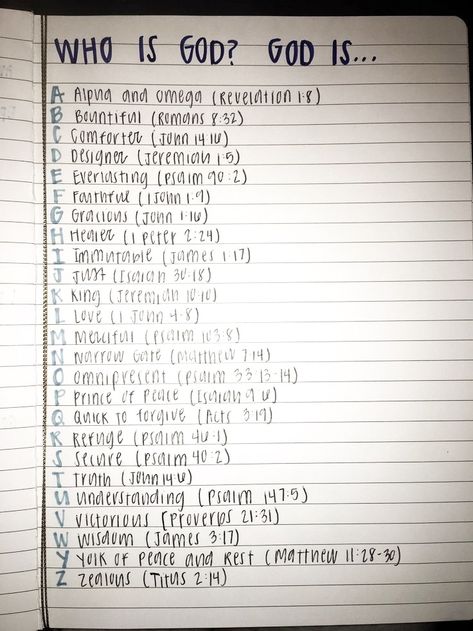 WHO IS GOD? GOD IS...
A Alpha and Omega (Revelation 1:8)
B Bountiful (Romans 8:32)
C Comforter (John 14:16)
D Designer (Jeremiah 1:5)
E Everlasting (Psalm 90:2)
F Faithful (1 John 1:9)
G Gracious (John 1:16)
H Healer (1 Peter 2:24)
I Immutable (James 1:17)
J Just (Isaiah 30:18)
K King (Jeremiah 10:10)
L Love (1 John 4:8)
M Merciful (Psalm 103:8)
N Narrow Gate (Matthew 7:14)
O Omnipresent (Psalm 33:13-14)
P Prince of Peace (Isaiah 9:6)
Q Quick to forgive (Acts 3:19)
R Refuge (Psalm 46:1)
S Secure (Psalm 40:2)
T Truth (John 14:6)
U Understanding (Psalm 147:5)
V Victorious [Proverbs 21:31)
W Wisdom (James 3:17)
Y Yolk of Peace and Rest (Matthew 11:28-30)
Z Zealous (Titus 2:14)